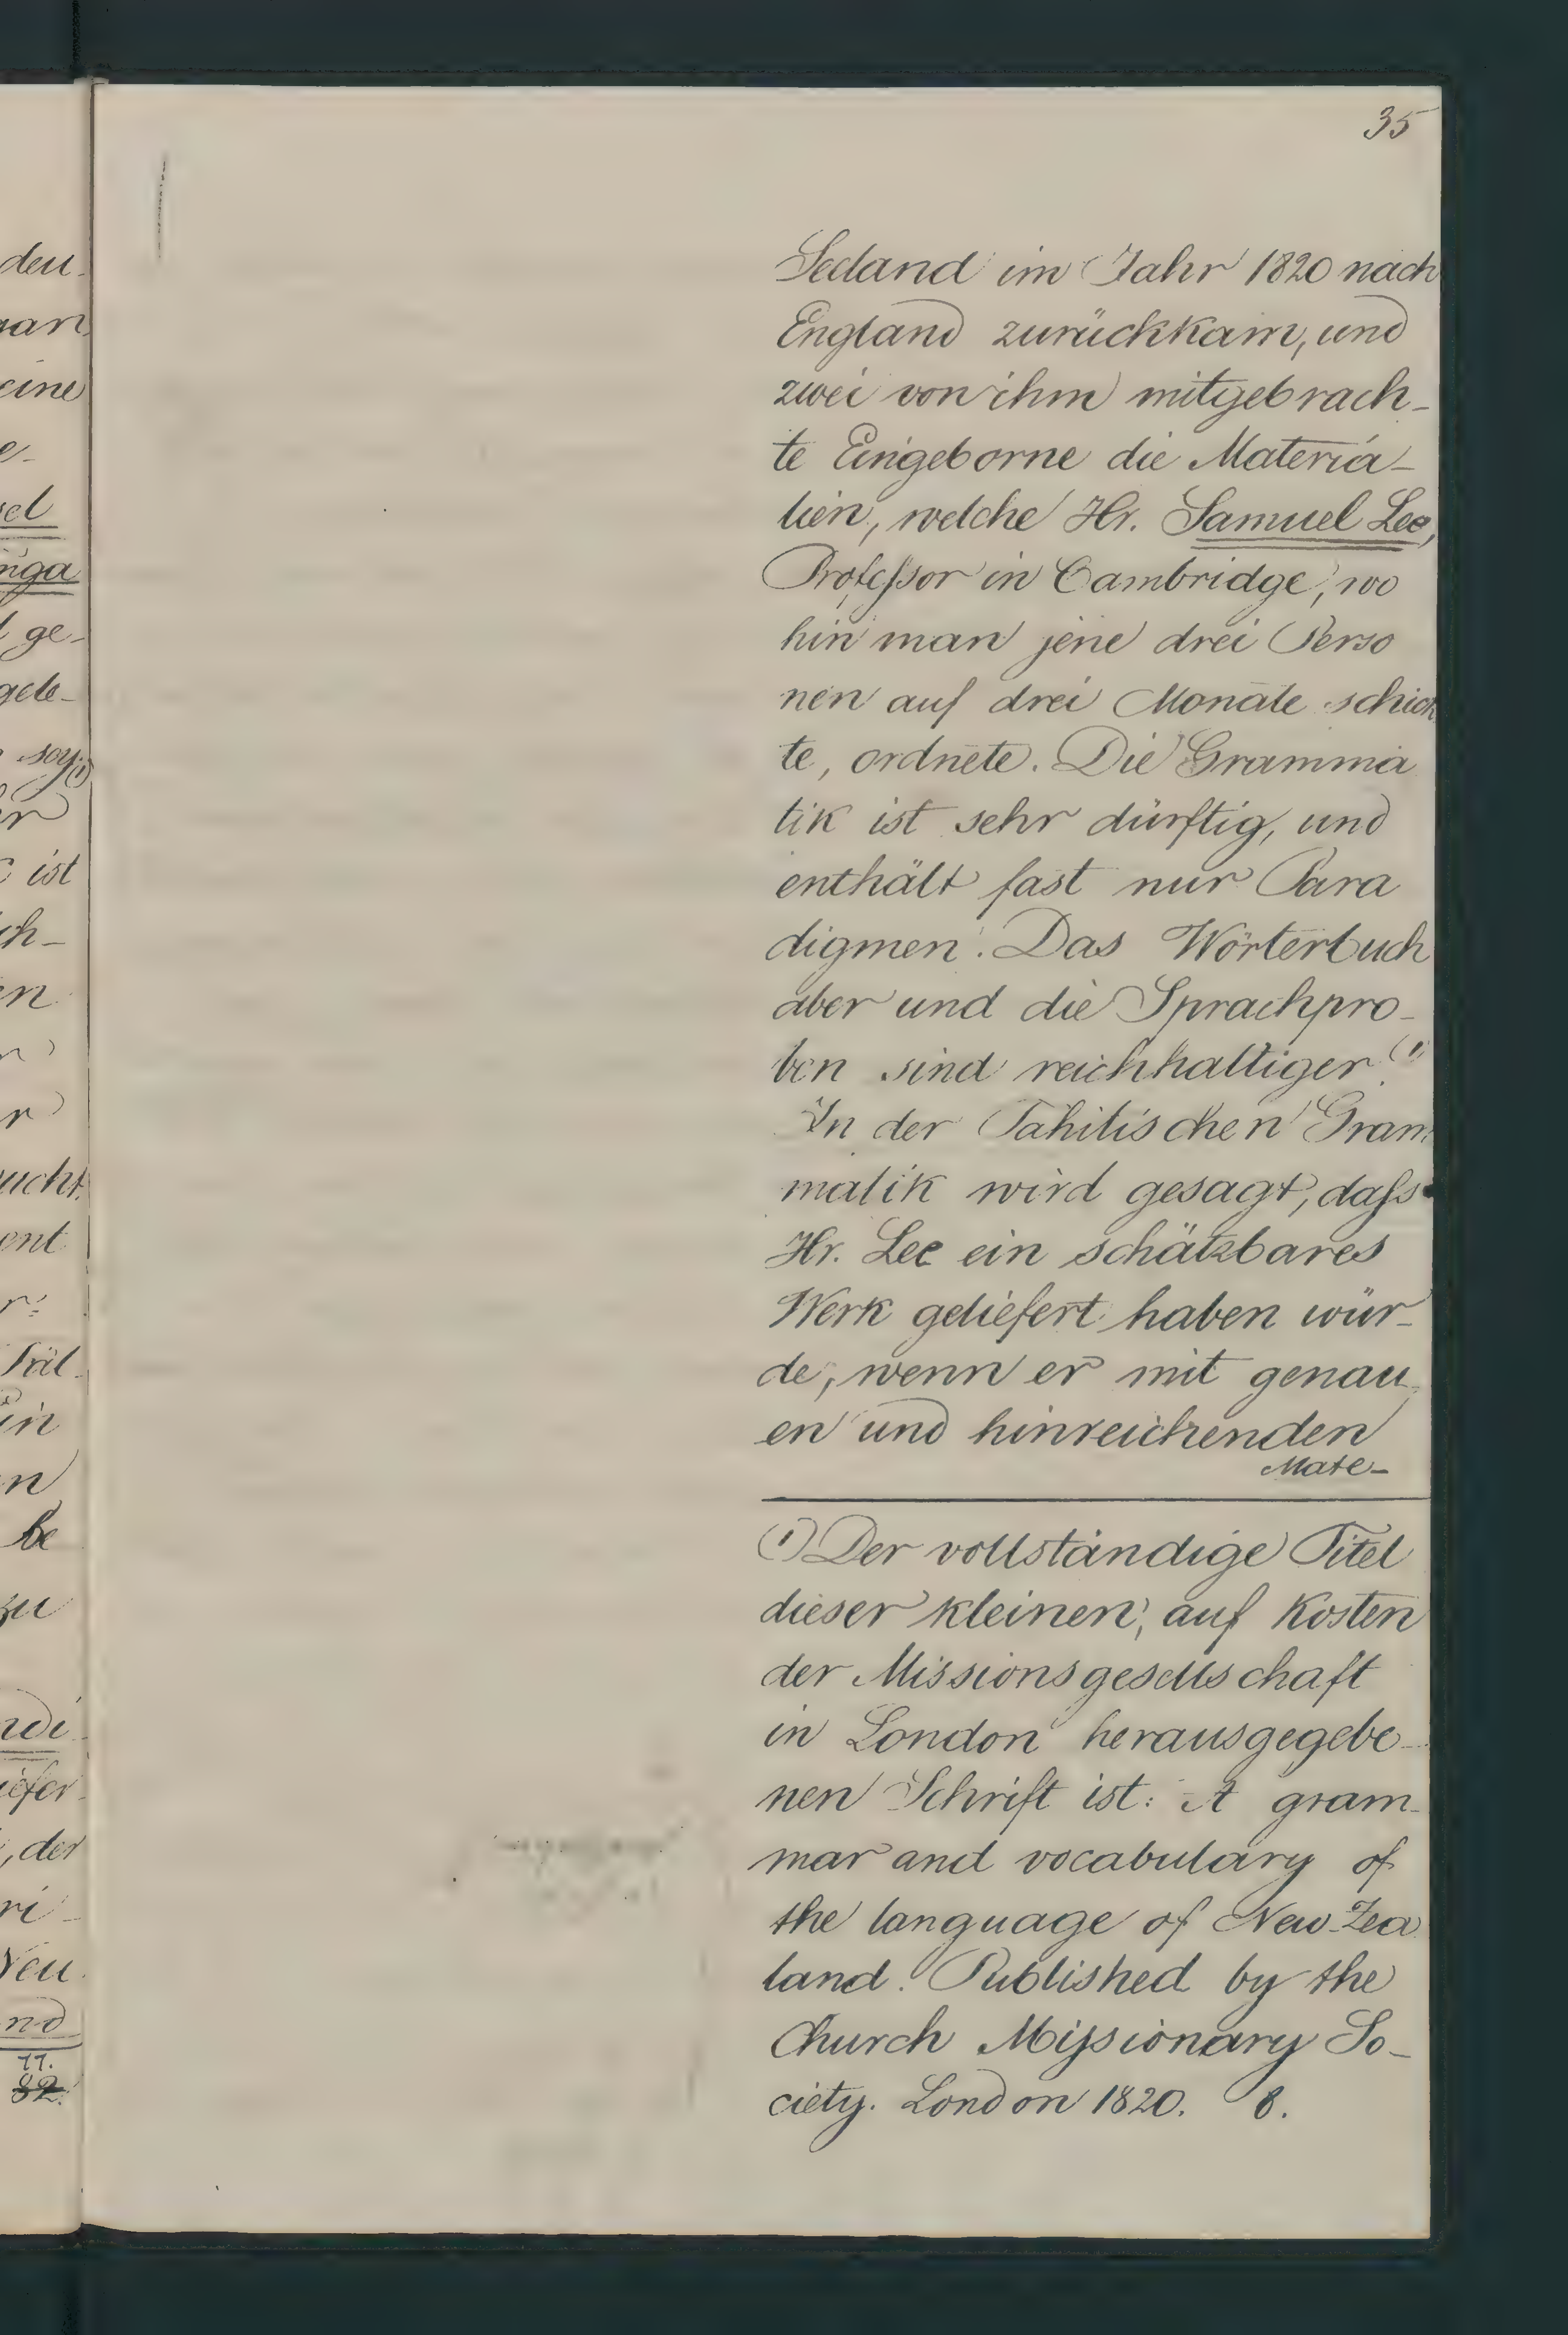 35
Seeland im Jahr 1820 nach
England zurückkam, und
zwei von ihm mitgebrach-
te Eingeborne die Materia-
lien, welche Hr. Samuel Lee,
Professor in Cambridge, wo
hin man jene drei Perso
nen auf drei Monate schick
te, ordnete. Die Gramma
tik ist sehr dürftig, und
enthält fast nur Para
digmen. Das Wörterbuch
aber und die Sprachpro-
ben sind reichhaltiger. (1)
In der Tahitischen Gram
matik wird gesagt, dass
Hr. Lee ein schätzbares
Werk geliefert haben wür-
de, wenn er mit genau
en und hinreichenden
Mate-
(1) Der vollständige Titel
dieser kleinen, auf Kosten
der Missionsgesellschaft
in London herausgegebe-
nen Schrift ist: A gram-
mar and vocabulary of
the language of New-Zea
land. Published by the
Church Missionary So-
ciety. London 1820. 8.
den
eine
ge-
ist
ch-
en
ent
in
be
zu
, der
11.
82.